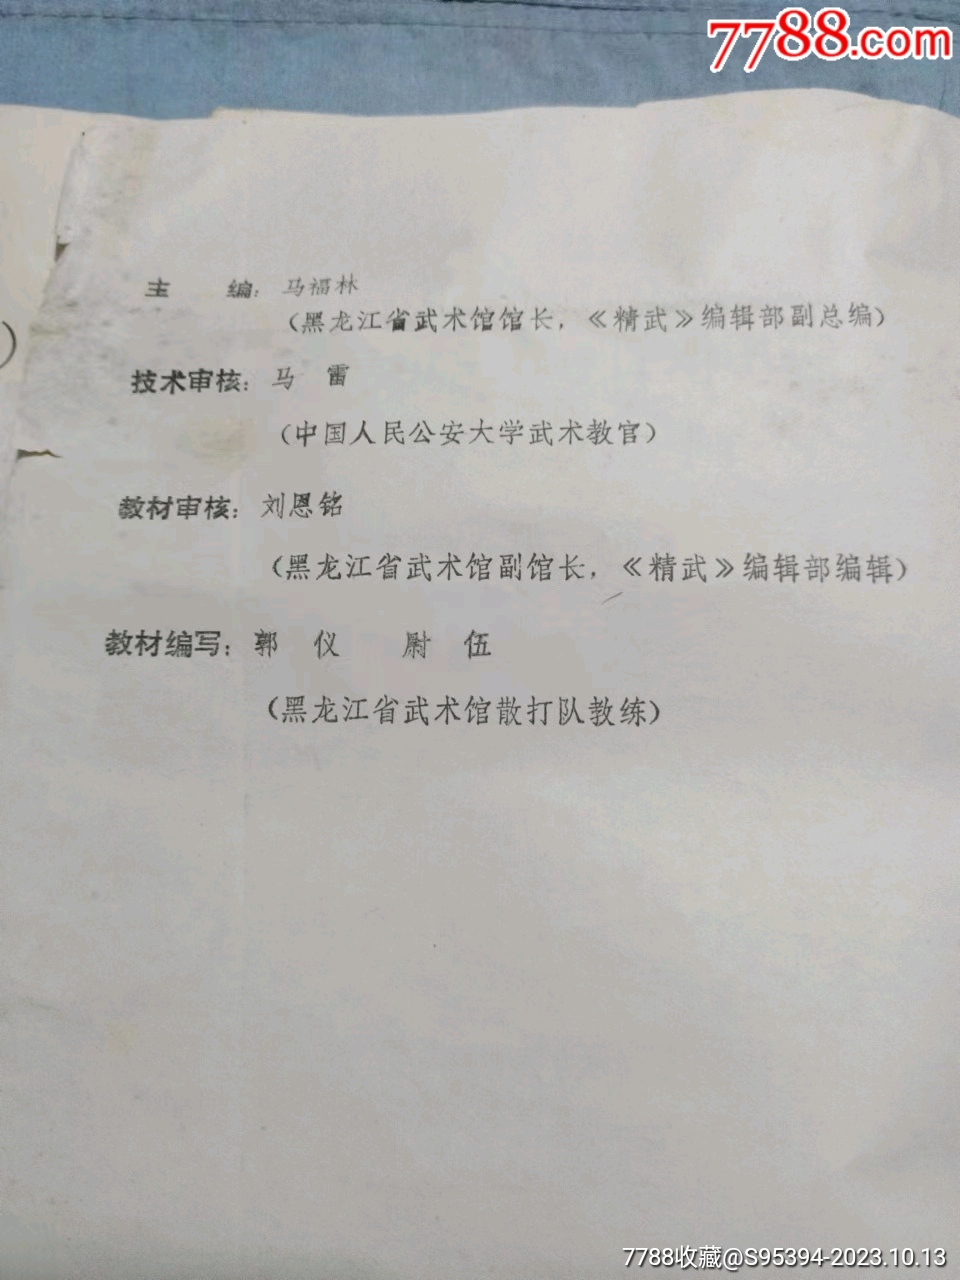 7788.com
主　　编：马福林
（黑龙江省武术馆馆长，《精武》编辑部副总编）
技术审核：马　雷
（中国人民公安大学武术教官）
教材审核：刘恩铭
（黑龙江省武术馆副馆长，《精武》编辑部编辑）
教材编写：郭　仪　　尉　伍
（黑龙江省武术馆散打队教练）
）
7788收藏@S95394-2023.10.13